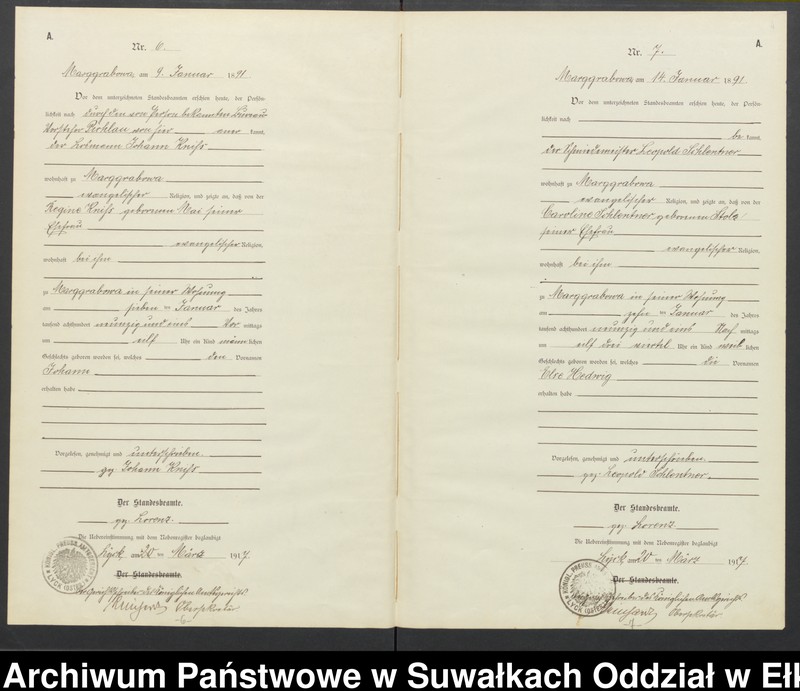 A.
Nr. 6.
Marggrabowa am 9. Januar 1891
Vor dem unterzeichneten Standesbeamten erschien heute, der Persön-
lichkeit nach durch den von Person bekannten Bureau
Vorsteher Perklau von hier aner kannt,
der Johann Kniss
wohnhaft zu Marggrabowa
evangelischer Religion, und zeigte an, daß von der
Regine Kniss geborenen Mai seiner
Ehefrau
evangelischer Religion,
wohnhaft bei ihm
zu Marggrabowa in seiner Wohnung
am sieben ten Januar des Jahres
tausend achthundert neunzig und eins Vor mittags
um elf Uhr ein Kind männ lichen
Geschlechts geboren worden sei, welches den Vornamen
Johann
erhalten habe
Vorgelesen, genehmigt und unterschrieben.
gez. Johann Kniss
Der Standesbeamte.
gez. Lorenz
Die Uebereinstimmung mit dem Nebenregister beglaubigt
Lyck am 20 ten März 1917.
Der Standesbeamte.
Gerichtsschreiber des Königlichen Amtsgerichts
Obersekretär
-6-
A.
Nr. 7.
Marggrabowa am 14. Januar 1891
Vor dem unterzeichneten Standesbeamten erschien heute, der Persön-
lichkeit nach
be kannt,
der Schmiedemeister Leopold Schlentner
wohnhaft zu Marggrabowa
evangelischer Religion, und zeigte an, daß von der
Caroline Schlentner geborenen
seiner Ehefrau
evangelischer Religion,
wohnhaft bei ihm
zu Marggrabowa in seiner Wohnung
am zehn ten Januar des Jahres
tausend achthundert neunzig und eins Nach mittags
um elf drei viertel Uhr ein Kind weib lichen
Geschlechts geboren worden sei, welches die Vornamen
Else Hedwig
erhalten habe
Vorgelesen, genehmigt und unterschrieben.
gez. Leopold Schlentner.
Der Standesbeamte.
gez. Lorenz
Die Uebereinstimmung mit dem Nebenregister beglaubigt
Lyck am 20 ten März 1917
Der Standesbeamte.
Gerichtsschreiber des Königlichen Amtsgerichts
Obersekretär
-7-
Archiwum Państwowe w Suwałkach Oddział w Ełk